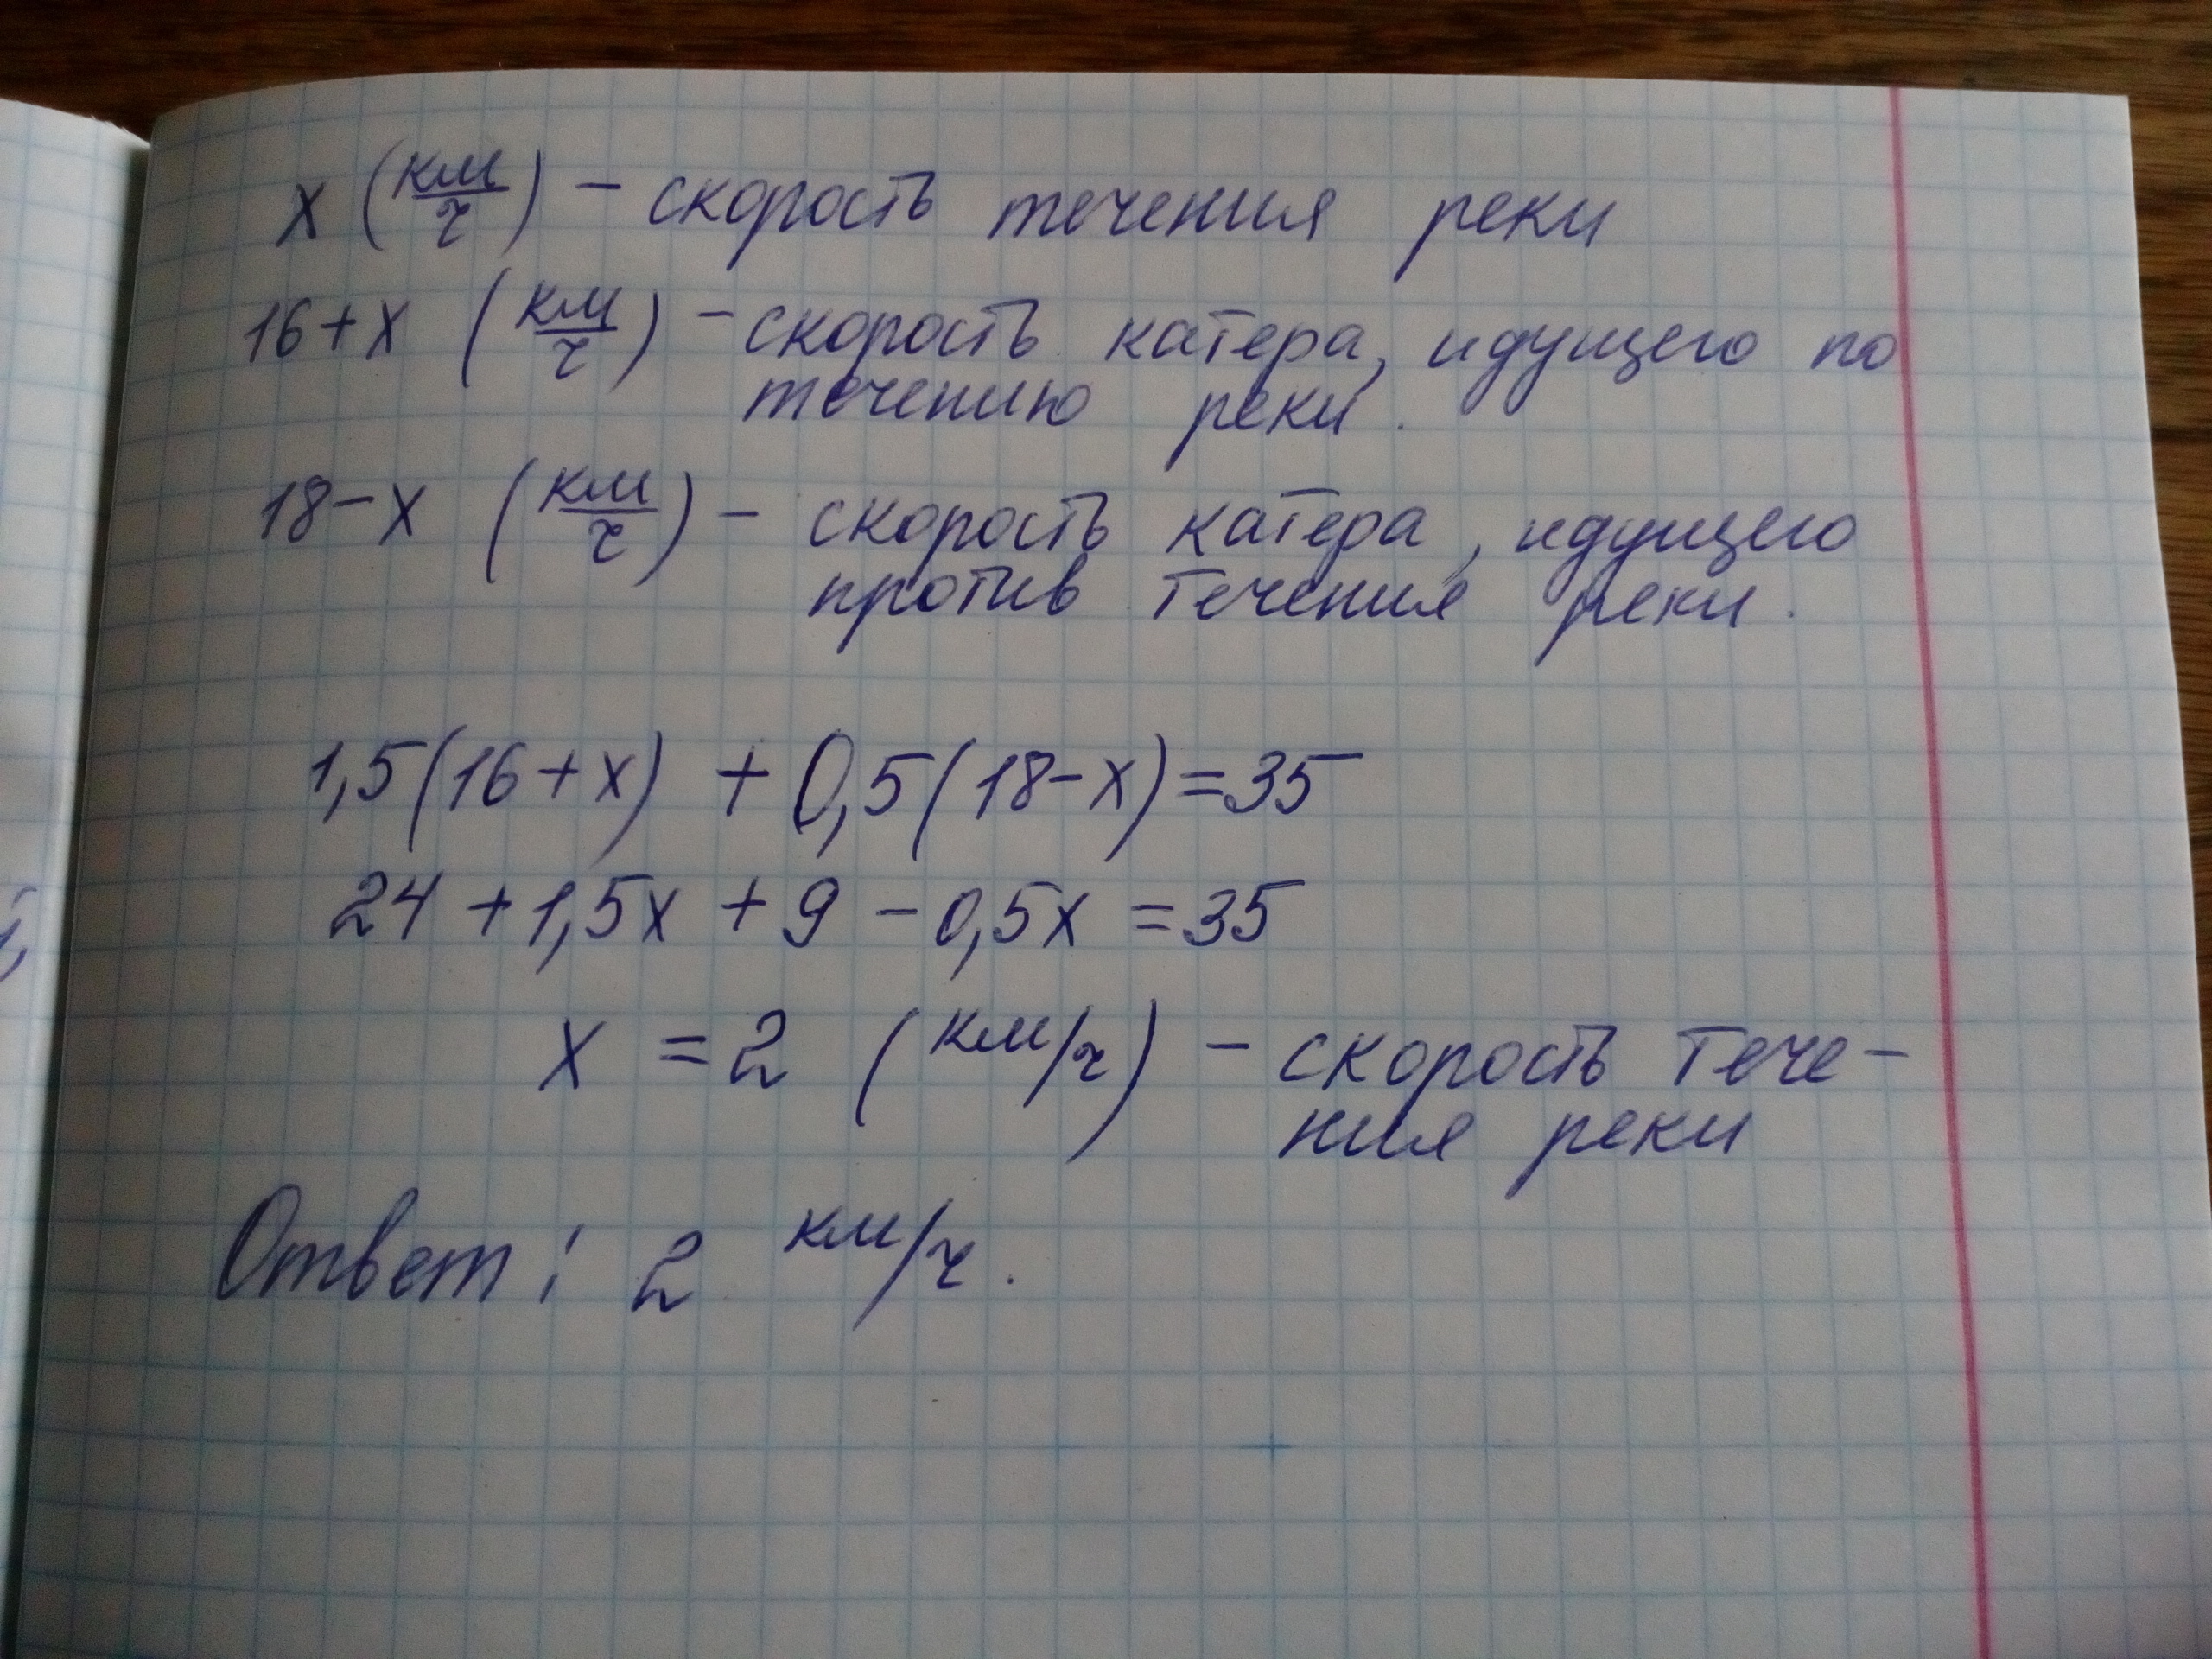 x (км/ч) – скорость течения реки
16+x (км/ч) – скорость катера, идущего по
течению реки.
18–x (км/ч) – скорость катера, идущего
против течения реки.
1,5(16+x) + 0,5(18–x)=35
24 +1,5x +9 –0,5x =35
x =2 (км/ч) – скорость тече-
ния реки
Ответ: 2 км/ч.